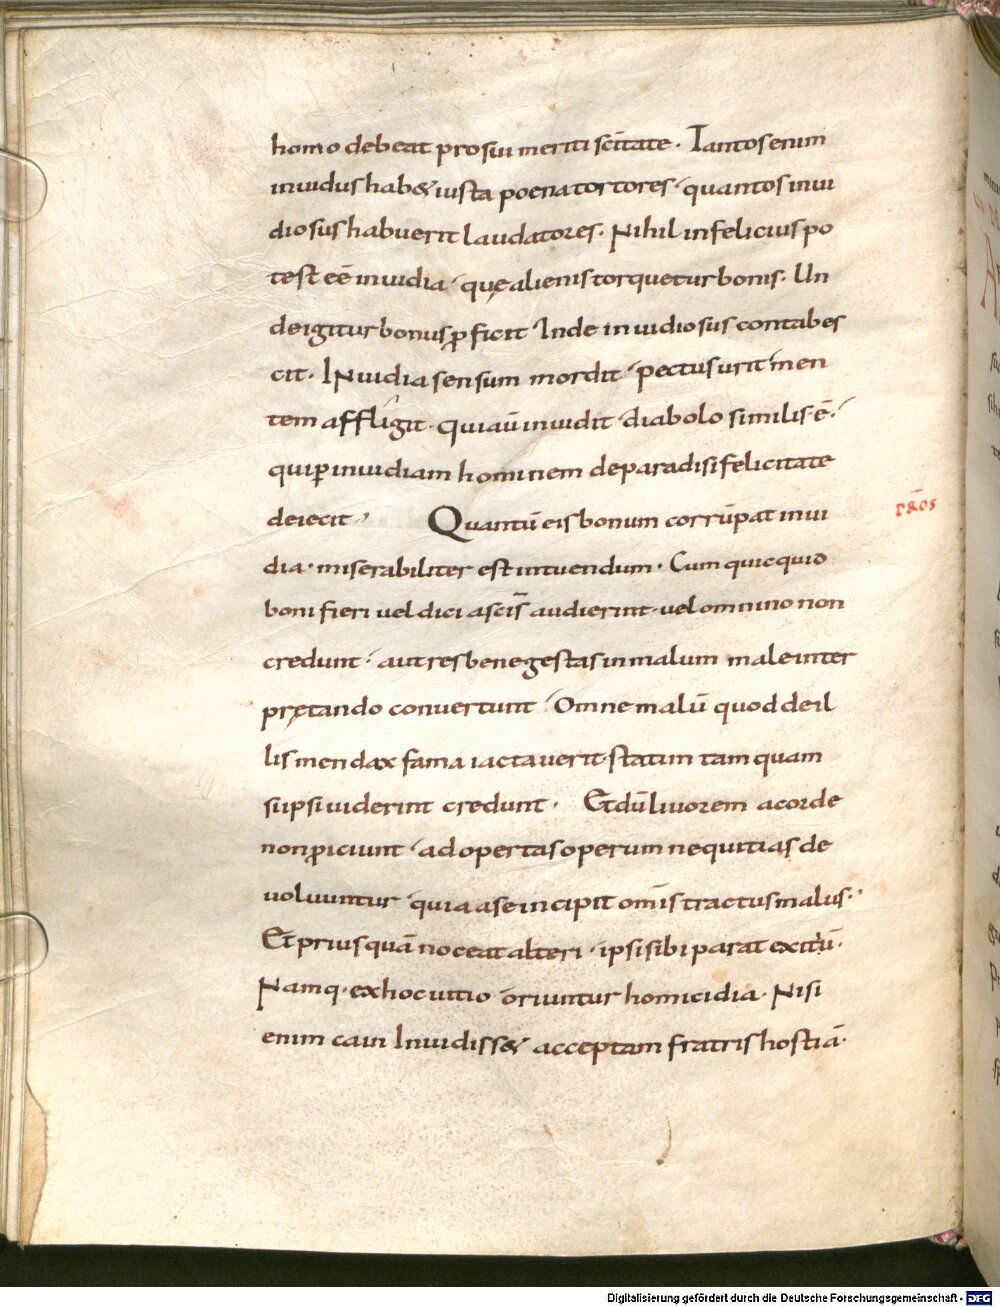 homo debeat pro sui meriti sc̄itate. Tantos enim
inuidus hab& iusta poena tortores. quantos inui
diosus habuerit laudatores. Nihil infelicius po
test eē inuidia. quę alienis torquetur bonis. Un
de igitur bonus ꝓficit. Inde inuidiosus contabes
cit. INuidia sensum mordit. pectus urit. men
tem affligit. Qui aū inuidit. diabolo similis ē.
qui ꝑ inuidiam hominem de paradisi felicitate
deiecit. Quantū eis bonum corrūpat inui
dia. miserabiliter est intuendum. Cum quicquid
boni fieri uel dici a sc̄is audierint. uel omnino non
credunt. aut res bene gestas in malum male inter
prętando conuertunt. Omne malū quod de il
lis mendax fama iactauerit. statim tamquam
si ipsi uiderint credunt. Et dū liuorem a corde
non ꝓiciunt. ad opertas operum nequitias de
uoluuntur. quia a se incipit om̄is tractus malus.
Et prius quā noceat alteri. ipsi sibi parat exitū.
Namq. ex hoc uitio oriuntur homicidia. Nisi
enim cain Inuidiss& acceptam fratris hostiā.
Digitalisierung gefördert durch die Deutsche Forschungsgemeinschaft - DFG